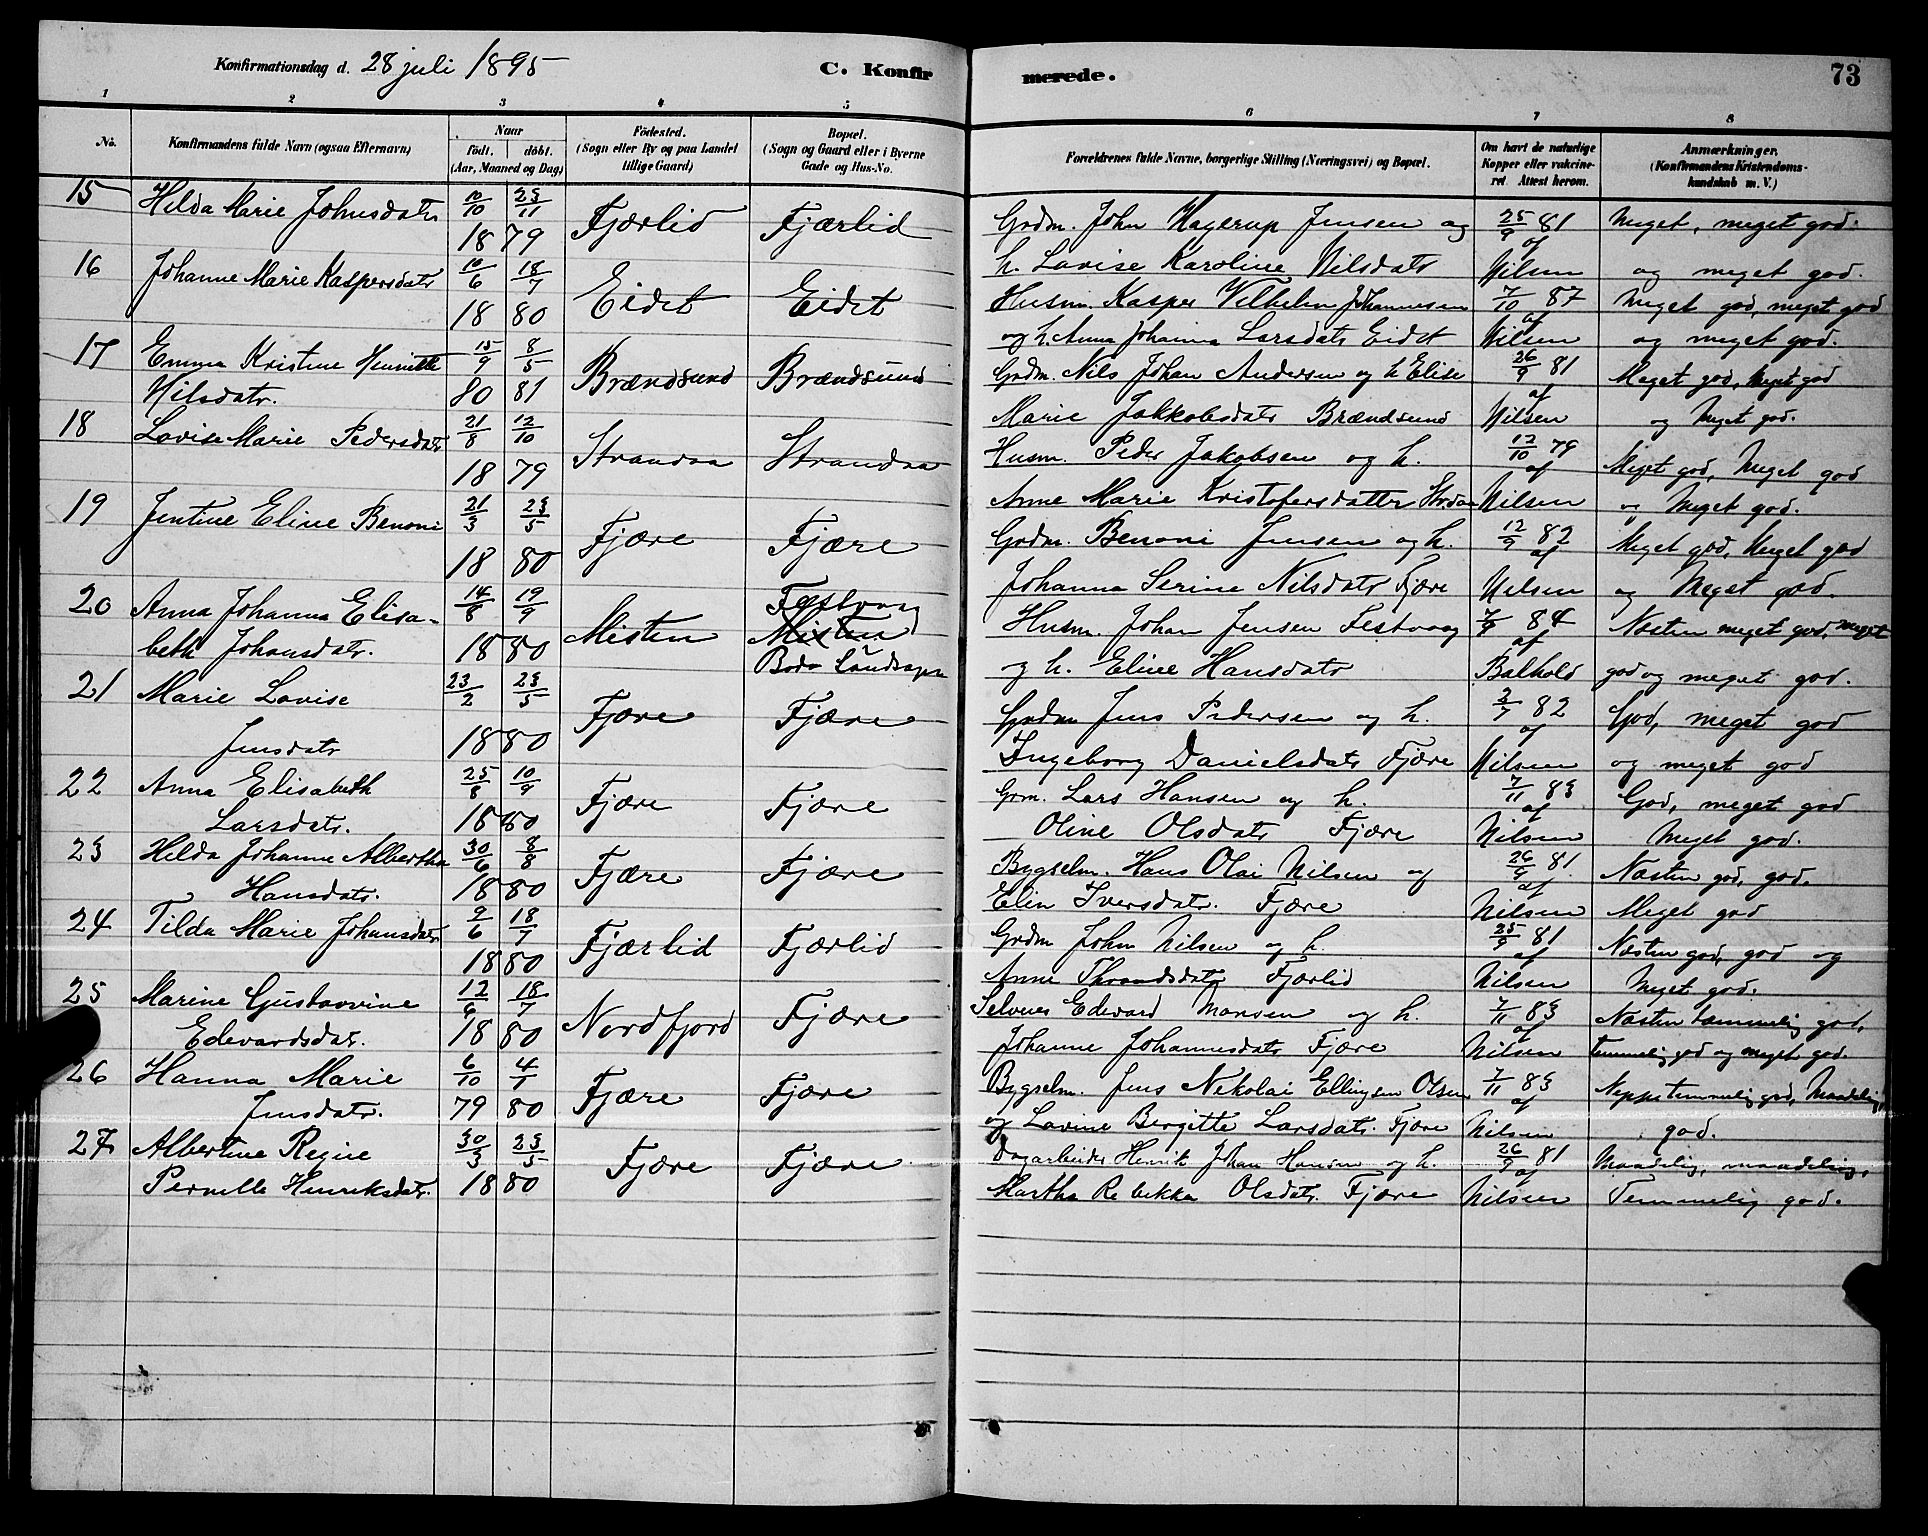 Konfirmationsdag d. 28 juli 1895
C. Konfirmerede.
73
1 2 3 4 5 6 7 8
No.
Konfirmandens fulde Navn (ogsaa Efternavn)
Naar
födt. döbt.
(Aar, Maaned og Dag)
Födested.
(Sogn eller By og paa Landet
tillige Gaard)
Bopæl.
(Sogn og Gaard eller i Byerne
Gade og Hus-No.
Forældrenes fulde Navne, borgerlige Stilling (Næringsvei) og Bopæl.
Om havt de naturlige
Kopper eller vakcine-
ret. Attest herom.
Anmærkninger.
(Konfirmandens Kristendoms-
kundskab m. V.)
15 Hilda Marie Johnsdatr 10/10 23/11 Fjærlid Fjærlid Grdm. John Hagerup Jensen og 25/9 81 Meget, meget god.
18 79 h. Lovise Karoline Nilsdatr af Nilsen og meget god.
16 Johanne Marie Kaspersdatr 10/6 18/7 Eidet Eidet Husm. Kasper Vilhelm Johannesen 7/10 87 Meget god, meget god
18 80 og h. Anna Johanna Larsdatr Eidet af Nilsen og meget god.
17 Emma Kristine Henriette 15/9 8/5 Brændsund Brændsund Grdm. Nils Johan Andersen og h Elise 26/9 81 Meget god, Meget god
Nilsdatr. 80 81 Marie Jakkobsdatr Brændsund af Nilsen og Meget god.
18 Lovise Marie Pedersdatr 21/8 12/10 Strandaa Strandaa Husm. Peder Jakobsen og h. 12/10 79 Meget god, Meget god
18 79 Anne Marie Kristofersdatter af Nilsen og Meget god.
19 Jentine Eline Benoni 21/3 23/5 Fjære Fjære Grdm. Benoni Jensen og h. 12/9 82 Meget god, Meget god
18 80 Johanna Serine Nilsdatr Fjære af Nilsen og Meget god.
20 Anna Johanna Elisa- 14/8 19/9 Misten Festvaag Husm. Johan Jensen Festvaag 84 Næsten meget god, meget
beth Johansdatr. 18 80 Misten Bodø Landsogn og h. Eline Hansdatr af Balhold god og meget god.
21 Marie Lovise 23/2 23/5 Fjære Fjære Grdm Jens Pedersen og h. 2/7 82 God, meget god
Jensdatr 18 80 Ingeborg Danielsdatr Fjære af Nilsen og meget god
22 Anna Elisabeth 25/8 10/9 Fjære Fjære Grm. Lars Hansen og h. 7/11 83 God, meget god
Larsdatr. 18 80 Oline Olsdatr Fjære af Nilsen Meget god.
23 Hilda Johanne Albertha 30/6 8/8 Fjære Fjære Bygselm. Hans Olai Nilsen og 26/9 81 Næsten god, god.
Hansdatr. 18 80 Elin Iversdatr. Fjære af Nilsen Meget god
24 Tilda Marie Johansdatr 2/6 18/7 Fjærlid Fjærlid Grdm John Nilsen og h. 25/9 81 Næsten god, god og
18 80 Anne Throndsdatr Fjærlid af Nilsen Meget god.
25 Marine Gustavvine 12/6 18/7 Nordfjord Fjære Selveier Edevard Monsen og h. 7/11 83 Næsten temmelig god,
Edevardsdatr. 18 80 Johanne Johannesdatr Fjære af Nilsen temmelig god og meget god.
26 Hanna Marie 6/10 4/1 Fjære Fjære Bygselm. Jens Nikolai Ellingsen Olsen 7/11 83 Neppe temmelig god, Maadelig,
Jensdatr. 79 80 og Lovine Bergitte Larsdatr. Fjære af Nilsen god.
27 Albertine Regine 30/3 23/5 Fjære Fjære Dagarbeider Henrik Johan Hansen og h. 26/9 81 Maadelig, maadelig,
Pernelle Henriksdatr. 18 80 Martha Rebekka Olsdatr. Fjære af Nilsen Temmelig god.